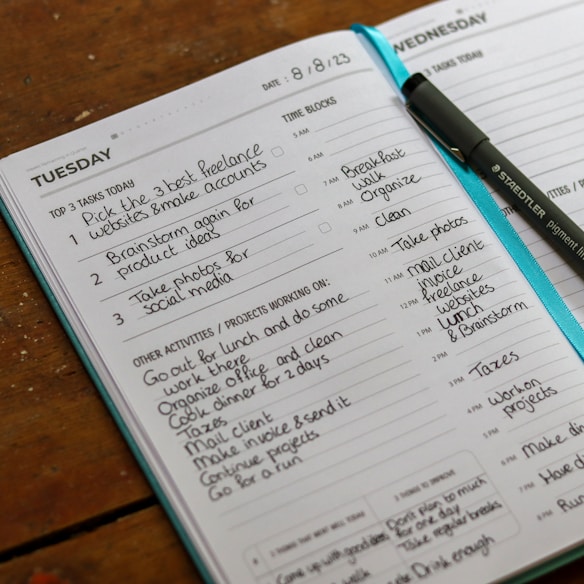 TUESDAY
DATE : 8/8/23
TOP 3 TASKS TODAY
1 Pick the 3 best freelance
websites & make accounts
2 Brainstorm again for
product ideas
3 Take photos for
social media
OTHER ACTIVITIES / PROJECTS WORKING ON:
Go out for lunch and do some
work there
Organize office and clean
Cook dinner for 2 days
Taxes
Mail client
Make invoice & send it
Continue projects
Go for a run
TIME BLOCKS
5 AM
6 AM
7 AM Breakfast
walk
8 AM Organize
9 AM Clean
10 AM Take photos
11 AM mail client
invoice
12 PM freelance
websites
1 PM lunch
& Brainstorm
2 PM
3 PM Taxes
4 PM work on
projects
5 PM
6 PM Make
7 PM Have
8 PM Run
3 THINGS THAT WENT WELL TODAY
Came up with good ideas
walk
3 THINGS TO IMPROVE
Don't plan to much
for one day
Take regular breaks
Drink enough
WEDNESDAY
TOP 3 TASKS TODAY
STAEDTLER pigment